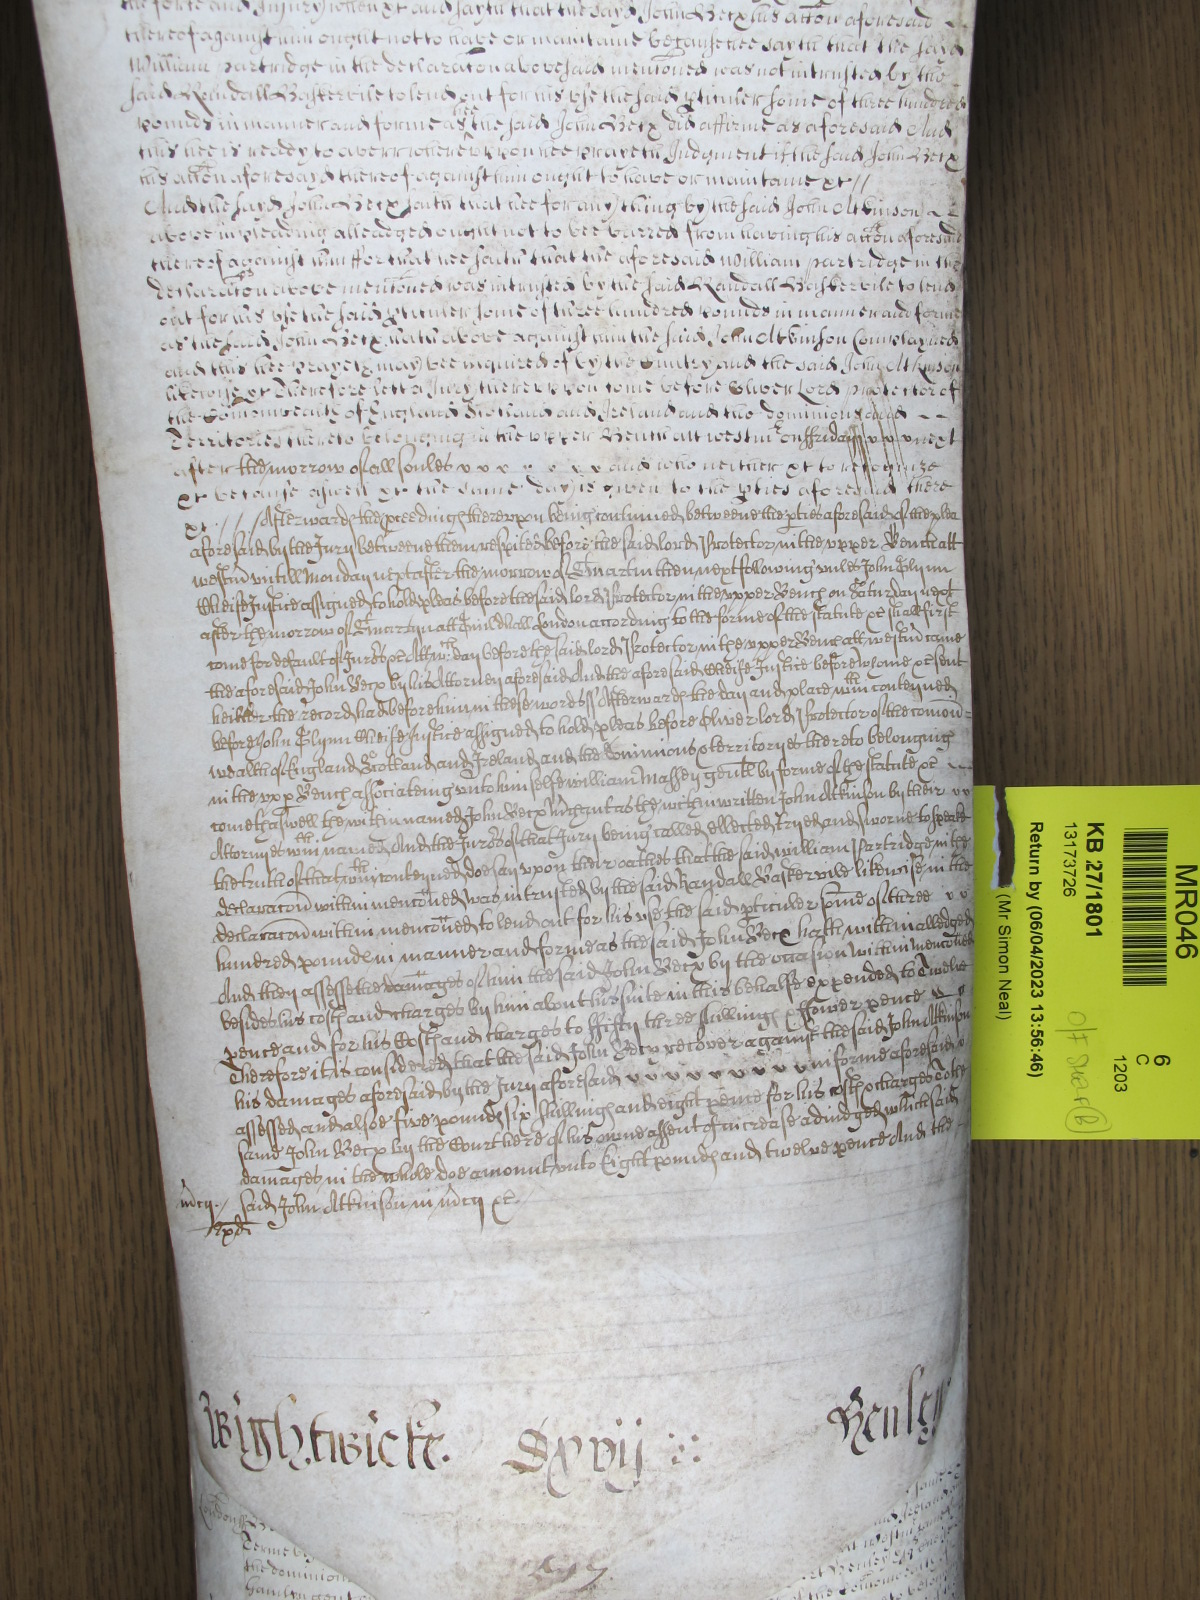 the force and Injury when xt and sayth that the sayd John Beex his accon aforesaid
thereof against him ought not to have or maintaine because hee sayth that the said
William Partridge in the declaracon abovesaid menconed was not intrusted by the
said Randall Baskervile to lend out for his vse the said pticuler some of three hundred
pounds in manner and forme as hee the said John Beex did affirme as aforesaid And
this hee is ready to averr wherevpon hee prayeth Judgment if the said John Beex
his accon aforesayd thereof against him ought to have or maintaine xt //
And the sayd John Beex saith that hee for any thing by the said John Atkinson
above in pleading alleadged ought not to bee barred from having his accon aforesaid
thereof against him ffor that hee saith that the aforesaid William Partridge in the
declaracon above menconed was intrusted by the said Randall Baskervile to lend
out for his vse the said pticuler some of three hundred pounds in manner and forme
as the said John Beex hath above against him the said John Atkinson Complayned
and this hee prayeth may bee inquired of by the Cuntry and the said John Atkinson
likewise xt Therefore lett a Jury therevpon come before Oliver Lord Protector of
the Comonwealth of England Scotland and Ireland and the dominions and
Territories thereto belonging in the vpper Bench att westmr on ffriday v v v next
after the morrow of all soules v v v v v v and who neither xt to recognize
xt because aswell xt the same day is given to the pties aforesaid there
xt // / Afterwards the pceedings therevpon being continued betweene the pties aforesaid of the plea
aforesaid by the Jury betweene them respited before the said lord Protector in the vpper Bench att
westm vntill Monday next after the morrow of St martin then next following vnles John Glynn
Cheife Justice assigned to hold pleas before the said lord Protector in the vpper Bench on Saturday next
after the morrow of St martyn att Guildhall London according to the forme of the statute xc shall first
come for default of Jurors xc Att wch day before the said lord Protector in the vpper Bench att westm came
the aforesaid John Beex by his Attorney aforesaid And the aforesaid Cheife Justice before whome xc sent
heither the record had before him in these words // Afterwards the day and place wthin conteyned
before John Glynn Cheife Justice assigned to hold pleas before Oliver lord Protector of the comon=
wealth of England Scotland and Ireland and the dominions & territoryes thereto belonging
in the vpp Bench associateing vnto himselfe william Massey gentl by forme of the statute xc
cometh aswell the within named John Beex mrchant as the within written John Atkinson by their v v
Attornyes wthin named And the Jurors of that Jury being called ellected tryed and sworne to speake
the truth of that wthin conteyned doe say vpon their oathes that the said william Partridge in the
declaracon within menconed was intrusted by the said Randall Baskervile likewise in the
declaracon within menconed to lend out for his vse the said pticuler some of three v v
hundred pounds in manner and forme as the said John Beex hath within alledged
And they assesse the damages of him the said John Beex by the occasion within menconed
besides his costs and charges by him about his suite in this behalfe expended to Twelve
pence and for his Costs and charges to ffifty three shillings & ffower pence
Therefore it is considered that the said John Beex recover against the said John Atkinson
his damages aforesaid by the Jury aforesaid v v v v v v v v in forme aforesaid
assessed and alsoe five pounds six shillings and eight pence for his costs & charges To the
same John Beex by the Court here of his owne assent of increase adiudged which said
damages in the whole doe amount vnto Eight pounds and twelve pence And the
mcy. / said John Atkinson in mcy xc
Wightwicke. Sxvij Henley
MR046
6
C
1203
KB 27/1801
13173726
Return by (06/04/2023 13:56:46)
(Mr Simon Neal)